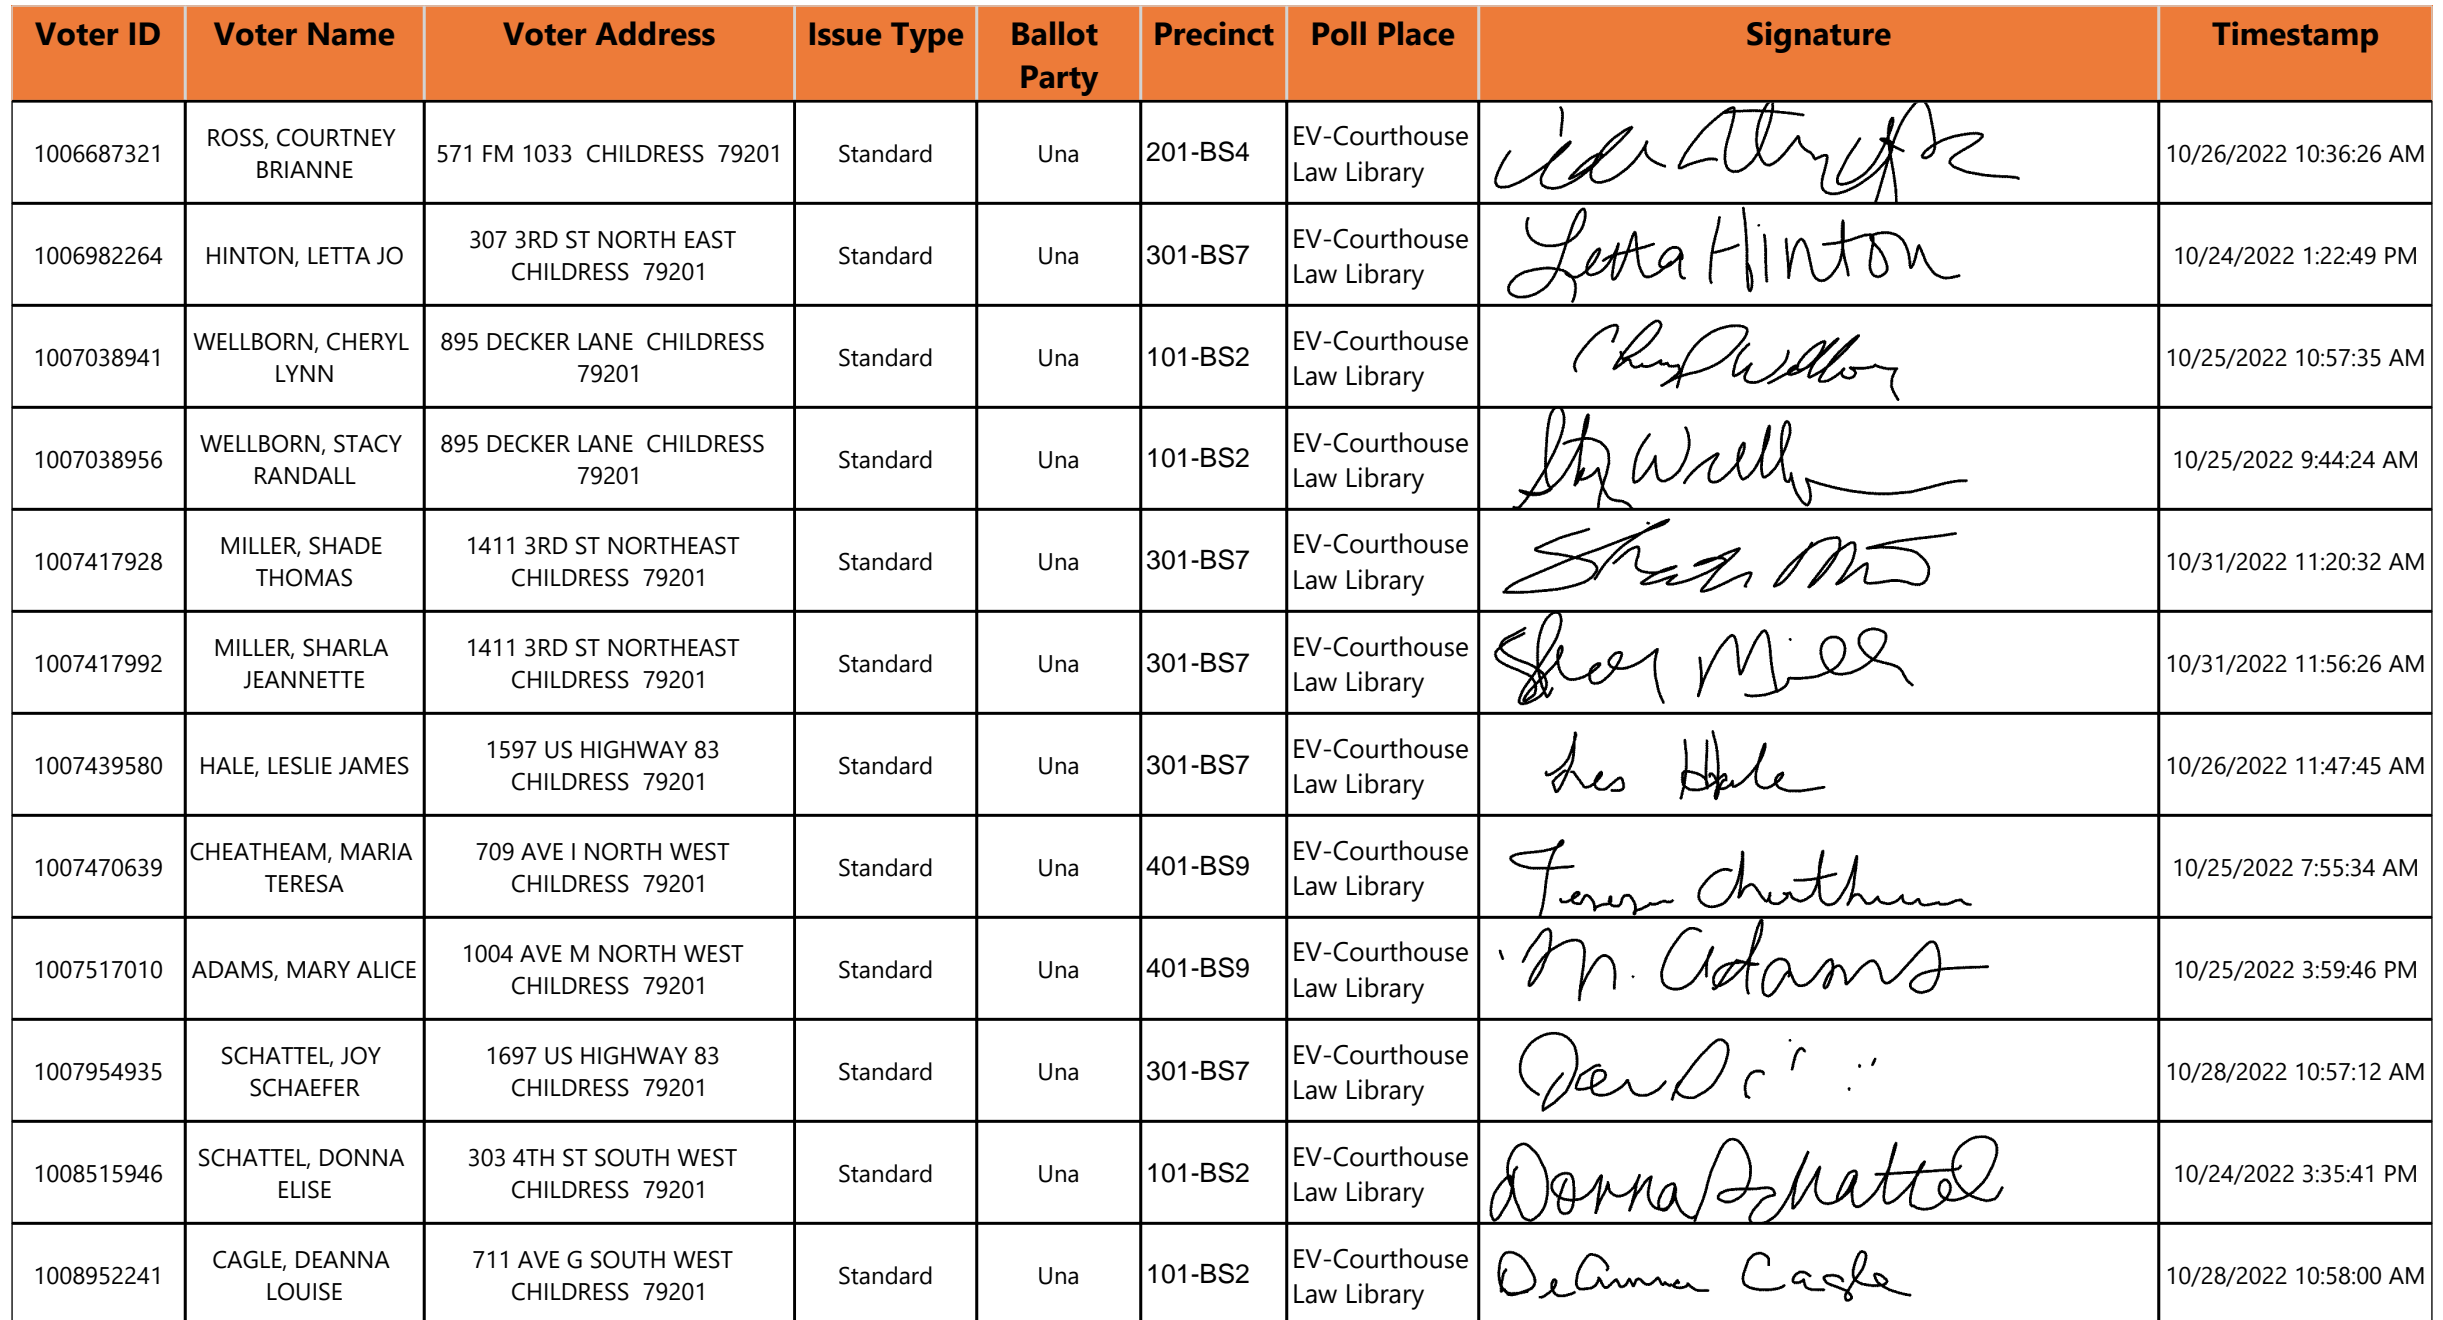 Voter ID Voter Name Voter Address Issue Type Ballot Party Precinct Poll Place Signature Timestamp
1006687321 ROSS, COURTNEY BRIANNE 571 FM 1033 CHILDRESS 79201 Standard Una 201-BS4 EV-Courthouse Law Library 10/26/2022 10:36:26 AM
1006982264 HINTON, LETTA JO 307 3RD ST NORTH EAST CHILDRESS 79201 Standard Una 301-BS7 EV-Courthouse Law Library Letta Hinton 10/24/2022 1:22:49 PM
1007038941 WELLBORN, CHERYL LYNN 895 DECKER LANE CHILDRESS 79201 Standard Una 101-BS2 EV-Courthouse Law Library 10/25/2022 10:57:35 AM
1007038956 WELLBORN, STACY RANDALL 895 DECKER LANE CHILDRESS 79201 Standard Una 101-BS2 EV-Courthouse Law Library 10/25/2022 9:44:24 AM
1007417928 MILLER, SHADE THOMAS 1411 3RD ST NORTHEAST CHILDRESS 79201 Standard Una 301-BS7 EV-Courthouse Law Library 10/31/2022 11:20:32 AM
1007417992 MILLER, SHARLA JEANNETTE 1411 3RD ST NORTHEAST CHILDRESS 79201 Standard Una 301-BS7 EV-Courthouse Law Library 10/31/2022 11:56:26 AM
1007439580 HALE, LESLIE JAMES 1597 US HIGHWAY 83 CHILDRESS 79201 Standard Una 301-BS7 EV-Courthouse Law Library Les Hale 10/26/2022 11:47:45 AM
1007470639 CHEATHEAM, MARIA TERESA 709 AVE I NORTH WEST CHILDRESS 79201 Standard Una 401-BS9 EV-Courthouse Law Library 10/25/2022 7:55:34 AM
1007517010 ADAMS, MARY ALICE 1004 AVE M NORTH WEST CHILDRESS 79201 Standard Una 401-BS9 EV-Courthouse Law Library M. Adams 10/25/2022 3:59:46 PM
1007954935 SCHATTEL, JOY SCHAEFER 1697 US HIGHWAY 83 CHILDRESS 79201 Standard Una 301-BS7 EV-Courthouse Law Library 10/28/2022 10:57:12 AM
1008515946 SCHATTEL, DONNA ELISE 303 4TH ST SOUTH WEST CHILDRESS 79201 Standard Una 101-BS2 EV-Courthouse Law Library Donna Schattel 10/24/2022 3:35:41 PM
1008952241 CAGLE, DEANNA LOUISE 711 AVE G SOUTH WEST CHILDRESS 79201 Standard Una 101-BS2 EV-Courthouse Law Library DeAnna Cagle 10/28/2022 10:58:00 AM